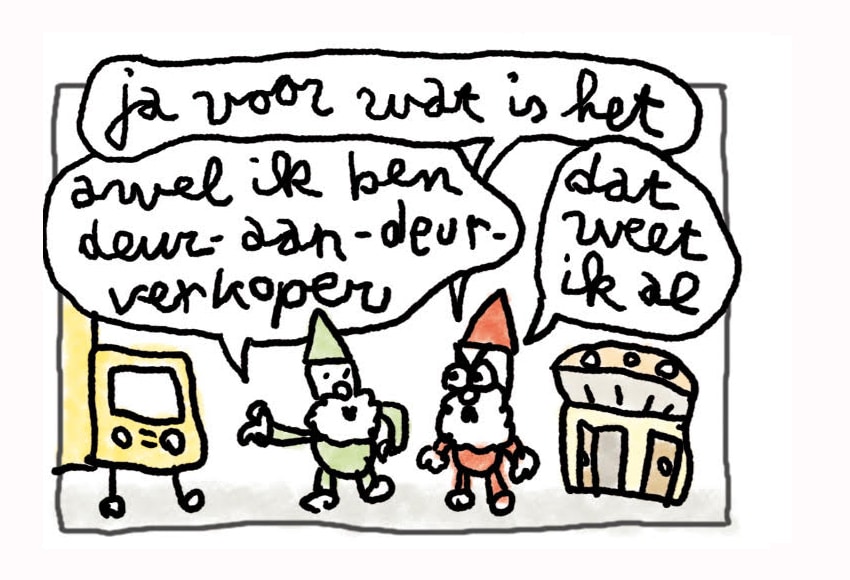 ja voor wat is het
awel ik ben
deur-aan-deur-
verkoper
dat
weet
ik al